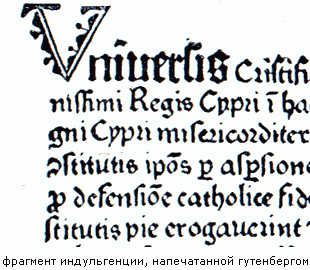 Vniuersis Cristifi
nissimi Regis Cypri ī ha
gni Cypri misericorditer
ɔstitutis ip̄os ꝑ aspsione
ꝑ defensiōe catholice fid
stitutis pie erogauerint
фрагмент индульгенции, напечатанной гутенбергом